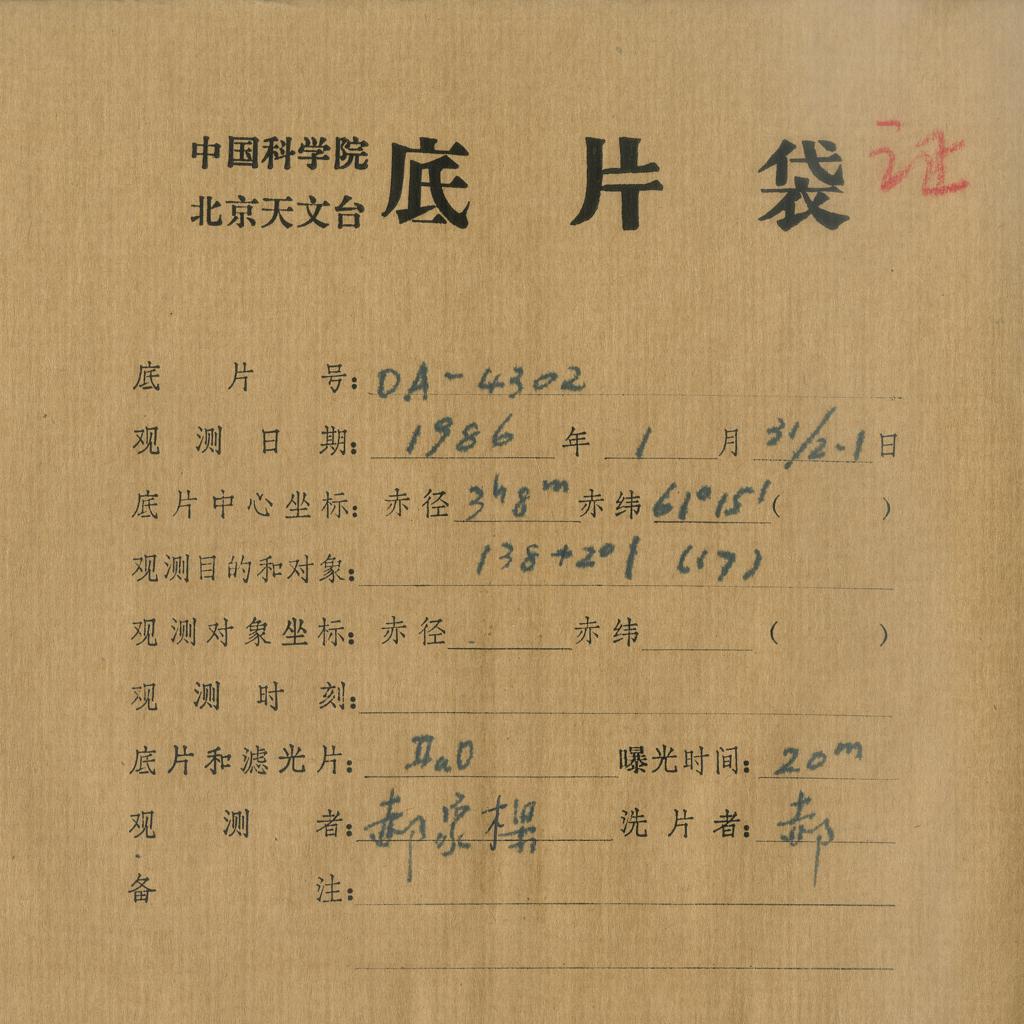 中国科学院
北京天文台
底片袋
底片号：DA-4302
观测日期：1986年1月31/2-1日
底片中心坐标：赤径3h8m赤纬61°15′(    )
观测目的和对象：138+201 (17)
观测对象坐标：赤径    赤纬    (    )
观测时刻：
底片和滤光片：IIaO    曝光时间：20m
观测者：郝家    洗片者：郝
备注：